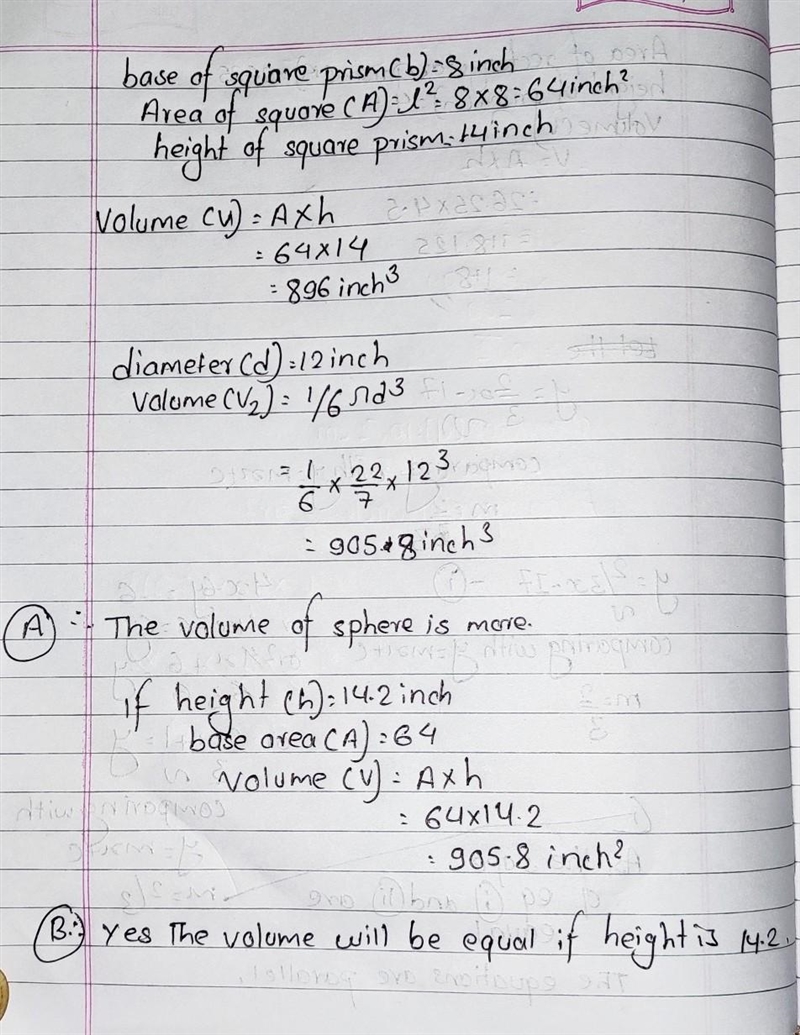 base of square prism (b) = 8 inch
Area of square (A) = l² = 8 × 8 = 64 inch²
height of square prism = 14 inch
Volume (V) = A × h
= 64 × 14
= 896 inch³
diameter (d) = 12 inch
Volume (V₂) = 1/6 πd³
= 1/6 × 22/7 × 12³
= 905.8 inch³
(A) ∴ The volume of sphere is more.
if height (h) = 14.2 inch
base area (A) = 64
Volume (V) = A × h
= 64 × 14.2
= 905.8 inch²
(B) ∴ Yes The volume will be equal if height is 14.2.